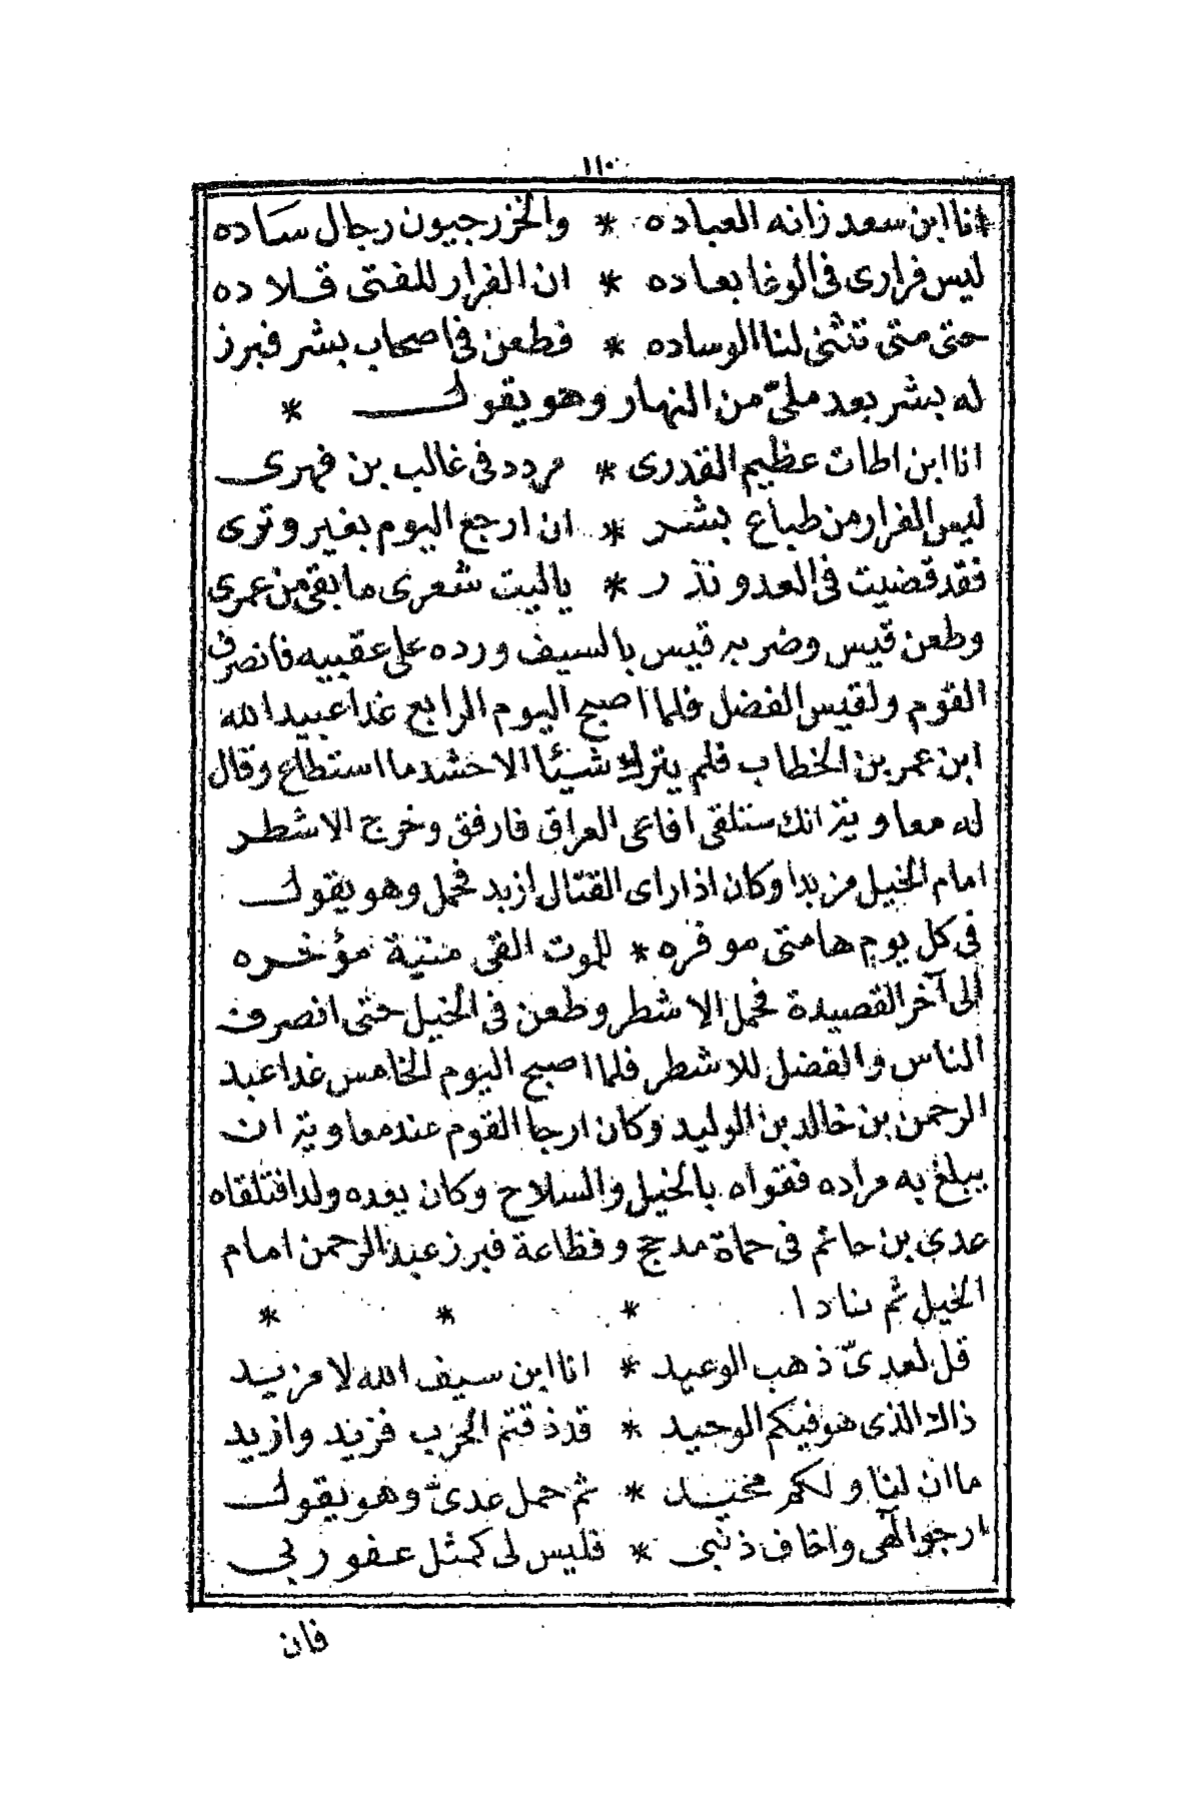 ١١٠
انا ابن سعد زانه العباده * والخزرجيون رجال ساده
ليس فرارى فى الوغا بعاده * ان الفرار للفتى قلاده
حتى متى تنثنى لنا الوساده * فطعن فى اصحاب بشر فبرز
له بشر بعد ملىّ من النهار وهو يقول *
انا ابن اطات عظيم القدرى * مردد فى غالب بن فهرى
ليس الفرار من طباع بشر * ان ارجع اليوم بغير وترى
فقد قضيت فى العدو نذر * ياليت شعرى ما بقى من عمرى
وطعن قيس وضربه قيس بالسيف ورده على عقبيه فانصرف
القوم ولقيس الفضل فلما اصبح اليوم الرابع غدا عبيد الله
ابن عمر بن الخطاب فلم يترك شيئا الا حشد ما استطاع وقال
له معاوية انك ستلقى افاعى العراق فارفق وخرج الاشطر
امام الخيل مزبدا وكان اذا راى القتال ازبد فحمل وهو يقول
فى كل يوم هامتى موفره * للموت القى منتية مؤخره
الى آخر القصيدة فحمل الاشطر وطعن فى الخيل حتى انصرف
الناس والفضل للاشطر فلما اصبح اليوم الخامس غدا عبد
الرحمن بن خالد بن الوليد وكان ارجا القوم عند معاوية ان
يبلغ به مراده فقواه بالخيل والسلاح وكان يعده ولدا فتلقاه
عدى بن حاتم فى حماة مدحج وفظاعة فبرز عبد الرحمن امام
الخيل ثم نادا * * *
قل لعدىّ ذهب الوعيد * انا ابن سيف الله لا مزيد
ذاك الذى هو فيكم الوحيد * قد ذقتم الحرب فزيد وازيد
ما ان لنا ولكم محيد * ثم حمل عدىّ وهو يقول
ارجو الهى واخاف ذنبى * فليس لى كمثل عفو ربى
فان